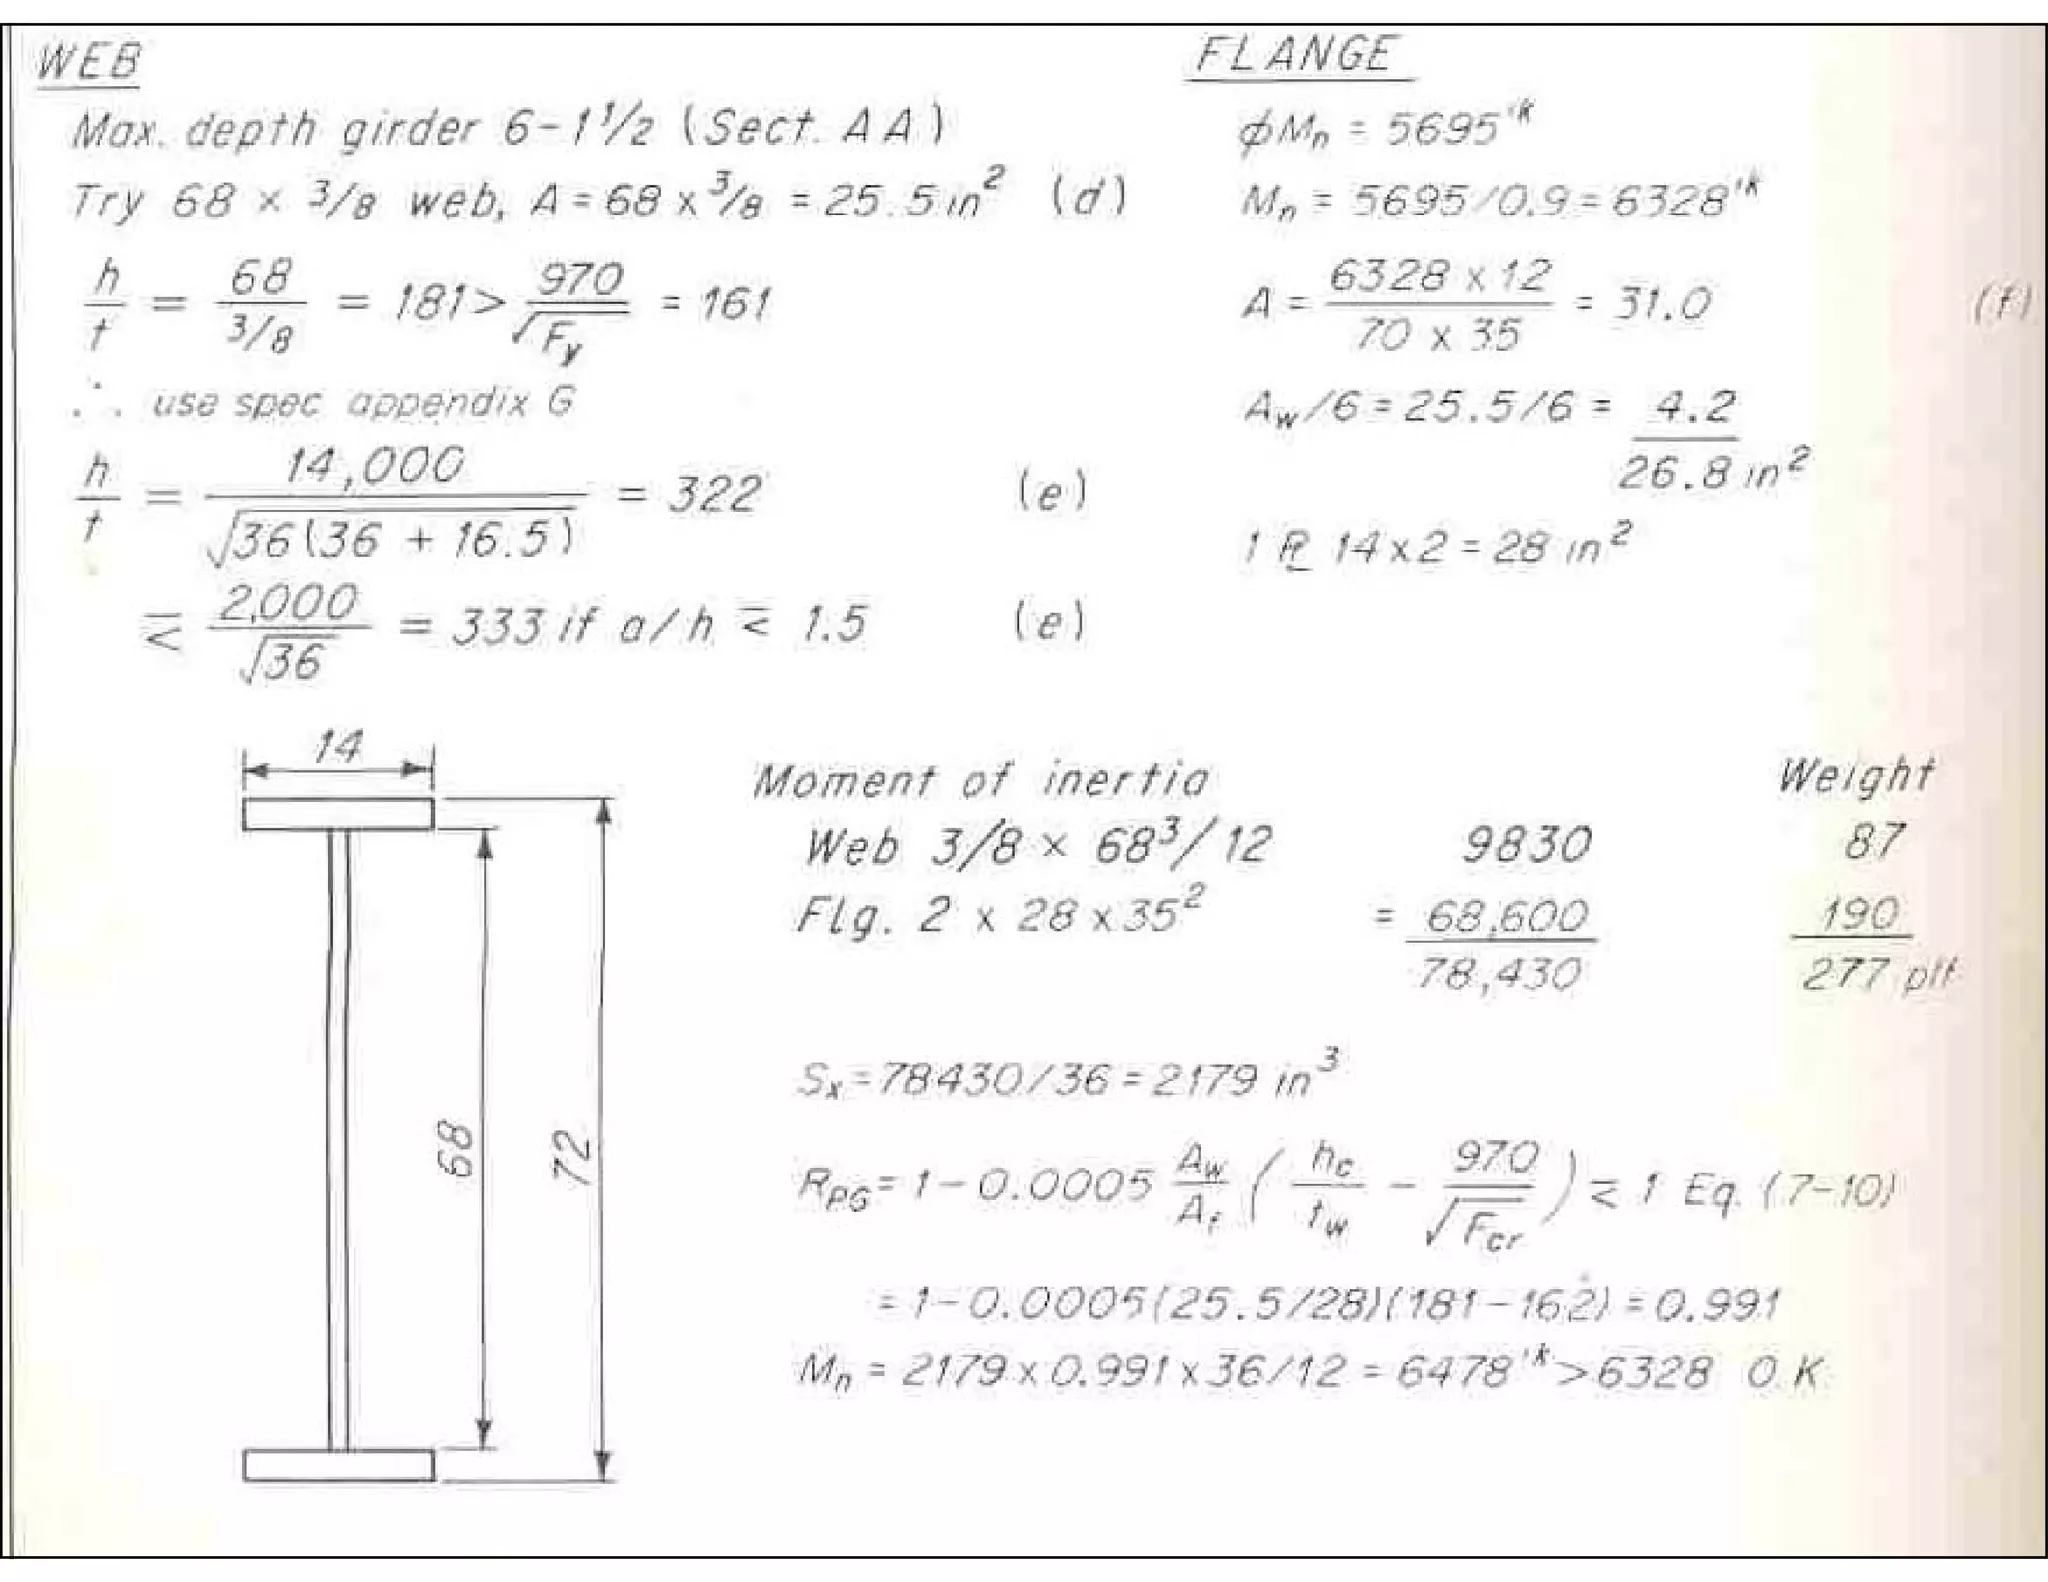 WEB
Max. depth girder 6-1 1/2 (Sect. AA)
Try 68 × 3/8 web, A = 68 x 3/8 = 25.5 in² (d)
h/t = 68/(3/8) = 181 > 970/√Fy = 161
∴ use spec appendix G
h/t = 14,000/√36(36 + 16.5) = 322 (e)
≤ 2,000/√36 = 333 if a/h ≤ 1.5 (e)
FLANGE
φMn = 5695'k
Mn = 5695/0.9 = 6328'k
A = 6328 x 12/70 x 35 = 31.0 (f)
Aw/6 = 25.5/6 = 4.2
26.8 in²
1 PL 14x2 = 28 in²
14
68
72
Moment of inertia Weight
Web 3/8 × 68³/12 9830 87
Flg. 2 x 28 x 35² = 68,600 190
78,430 277 plf
Sx = 78430/36 = 2179 in³
RPG = 1 - 0.0005 Aw/Af (hc/tw - 970/√Fcr) ≤ 1 Eq. (7-10)
= 1 - 0.0005(25.5/28)(181-162) = 0.991
Mn = 2179 x 0.991 x 36/12 = 6478'k > 6328 O.K.